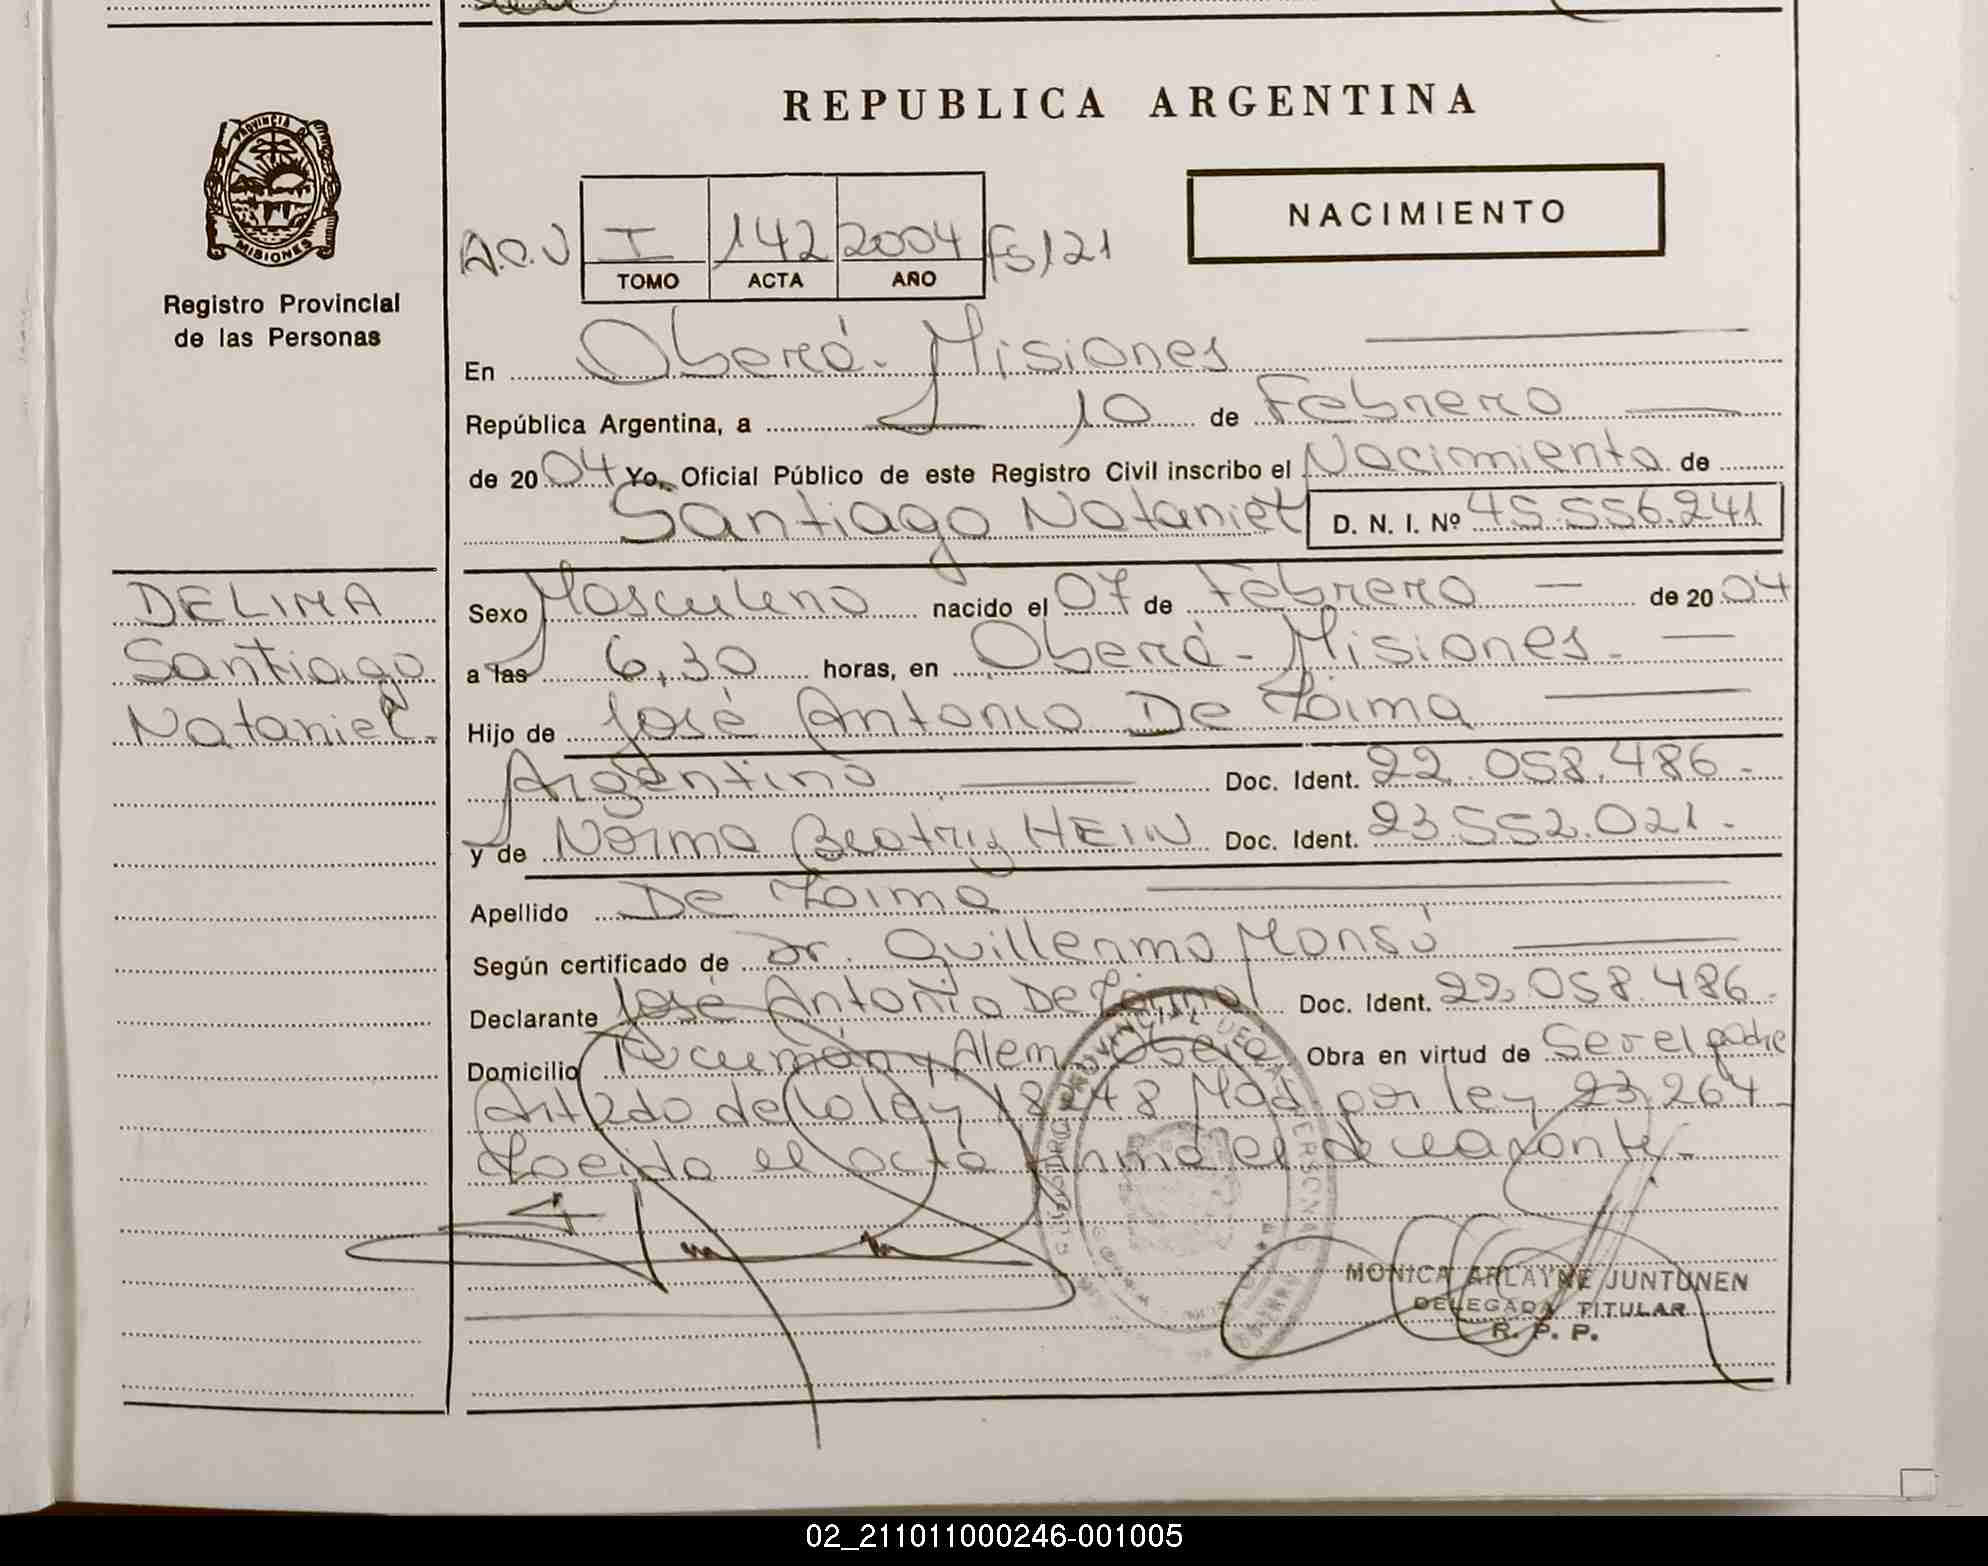 REPUBLICA ARGENTINA
PROVINCIA DE
MISIONES
Registro Provincial
de las Personas
NACIMIENTO
I 142 2004 Fs 121
TOMO ACTA AÑO
En Oberá - Misiones
República Argentina, a 10 de Febrero
de 2004 Yo, Oficial Público de este Registro Civil inscribo el Nacimiento de
Santiago Nataniel D. N. I. Nº 45.556.241
DELIMA
Santiago
Nataniel.
Sexo Masculino nacido el 07 de Febrero de 2004
a las 6,30 horas, en Oberá - Misiones.
Hijo de José Antonio De Loima
Argentino Doc. Ident. 22.058.486.
y de Norma Beatriz HEIN Doc. Ident. 23.552.021.
Apellido De Loima
Según certificado de Dr. Guillermo Monsú
Declarante José Antonio De Loima Doc. Ident. 22.058.486.
Domicilio Tucumán y Alem Oberá Obra en virtud de Ser el padre
Art 2do de la ley 18248 Mod por ley 23.264
Loeido el acta firma el declarante.
MONICA ARLAYNE JUNTUNEN
DELEGADA TITULAR
R. P. P.
02_211011000246-001005